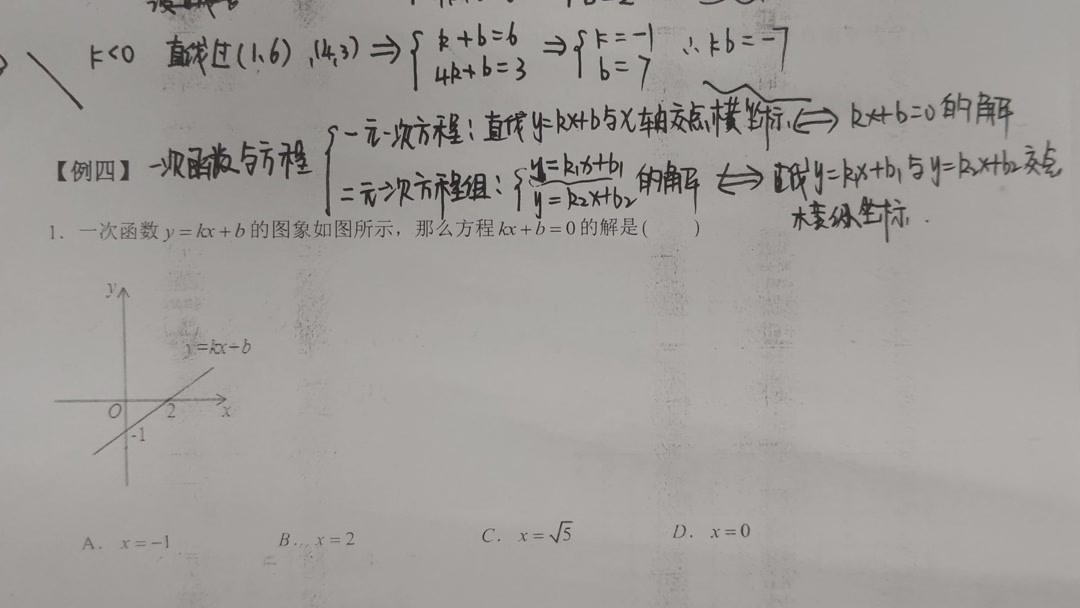 k<0 直线过(1,6),(4,3)⇒{k+b=6 4k+b=3 ⇒{k=-1 b=7 ∴kb=-7
【例四】一次函数与方程
一元一次方程:直线y=kx+b与x轴交点横坐标⇔kx+b=0的解
二元一次方程组:{y=k₁x+b₁ y=k₂x+b₂ 的解⇔直线y=k₁x+b₁与y=k₂x+b₂交点
横纵坐标.
1. 一次函数y=kx+b的图象如图所示,那么方程kx+b=0的解是( )
y
y=kx+b
O 2 x
-1
A. x=-1 B. x=2 C. x=√5 D. x=0